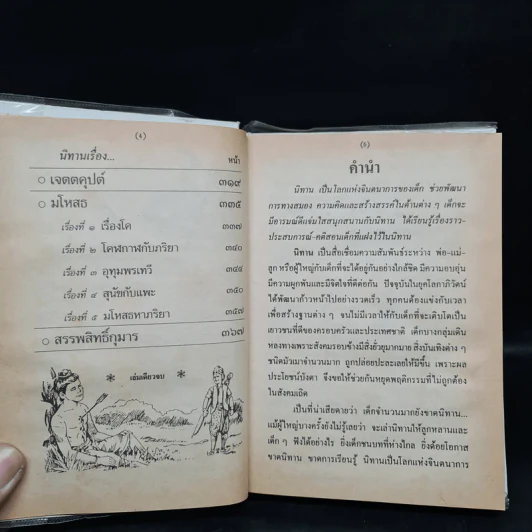 (๔)
นิทานเรื่อง... หน้า
○ เจตตคุปต์ ๓๑๙
○ มโหสธ ๓๓๕
เรื่องที่ ๑ เรื่องโค ๓๓๗
เรื่องที่ ๒ โคฬกาฬกับภริยา ๓๔๐
เรื่องที่ ๓ อุทุมพรเทวี ๓๔๔
เรื่องที่ ๔ สุนัขกับแพะ ๓๕๐
เรื่องที่ ๕ มโหสธหาภริยา ๓๕๗
○ สรรพสิทธิ์กุมาร ๓๖๗
* เล่มเดียวจบ *
(๕)
คำนำ
นิทาน เป็นโลกแห่งจินตนาการของเด็ก ช่วยพัฒนา
การทางสมอง ความคิดและสร้างสรรค์ในด้านต่าง ๆ เด็กจะ
มีอารมณ์ดีแจ่มใสสนุกสนานกับนิทาน ได้เรียนรู้เรื่องราว-
ประสบการณ์-คติสอนเด็กที่แฝงไว้ในนิทาน
นิทาน เป็นสื่อเชื่อมความสัมพันธ์ระหว่าง พ่อ-แม่-
ลูก หรือผู้ใหญ่กับเด็กที่จะได้อยู่กันอย่างใกล้ชิด มีความอบอุ่น
มีความผูกพันและมีจิตใจที่ดีต่อกัน ปัจจุบันในยุคโลกาภิวัตน์
ได้พัฒนาก้าวหน้าไปอย่างรวดเร็ว ทุกคนต้องแข่งกับเวลา
เพื่อสร้างฐานต่าง ๆ จนไม่มีเวลาให้กับเด็กที่จะเติบโตเป็น
เยาวชนที่ดีของครอบครัวและประเทศชาติ เด็กบางกลุ่มเดิน
หลงทางเพราะสังคมรอบข้างมีสิ่งยั่วยุมากมาย สิ่งบันเทิงต่าง ๆ
ชนิดมัวเมาจำนวนมาก ถูกปล่อยปะละเลยให้มีขึ้น เพราะผล
ประโยชน์บังตา จึงขอให้ช่วยกันหยุดพฤติกรรมที่ไม่ถูกต้อง
ในสังคมเถิด
เป็นที่น่าเสียดายว่า เด็กจำนวนมากยังขาดนิทาน...
แม้ผู้ใหญ่บางครั้งยังไม่รู้เลยว่า จะเล่านิทานให้ลูกหลานและ
เด็ก ๆ ฟังได้อย่างไร ยิ่งเด็กชนบทที่ห่างไกล ยิ่งด้อยโอกาส
ขาดนิทาน ขาดการเรียนรู้ นิทานเป็นโลกแห่งจินตนาการ